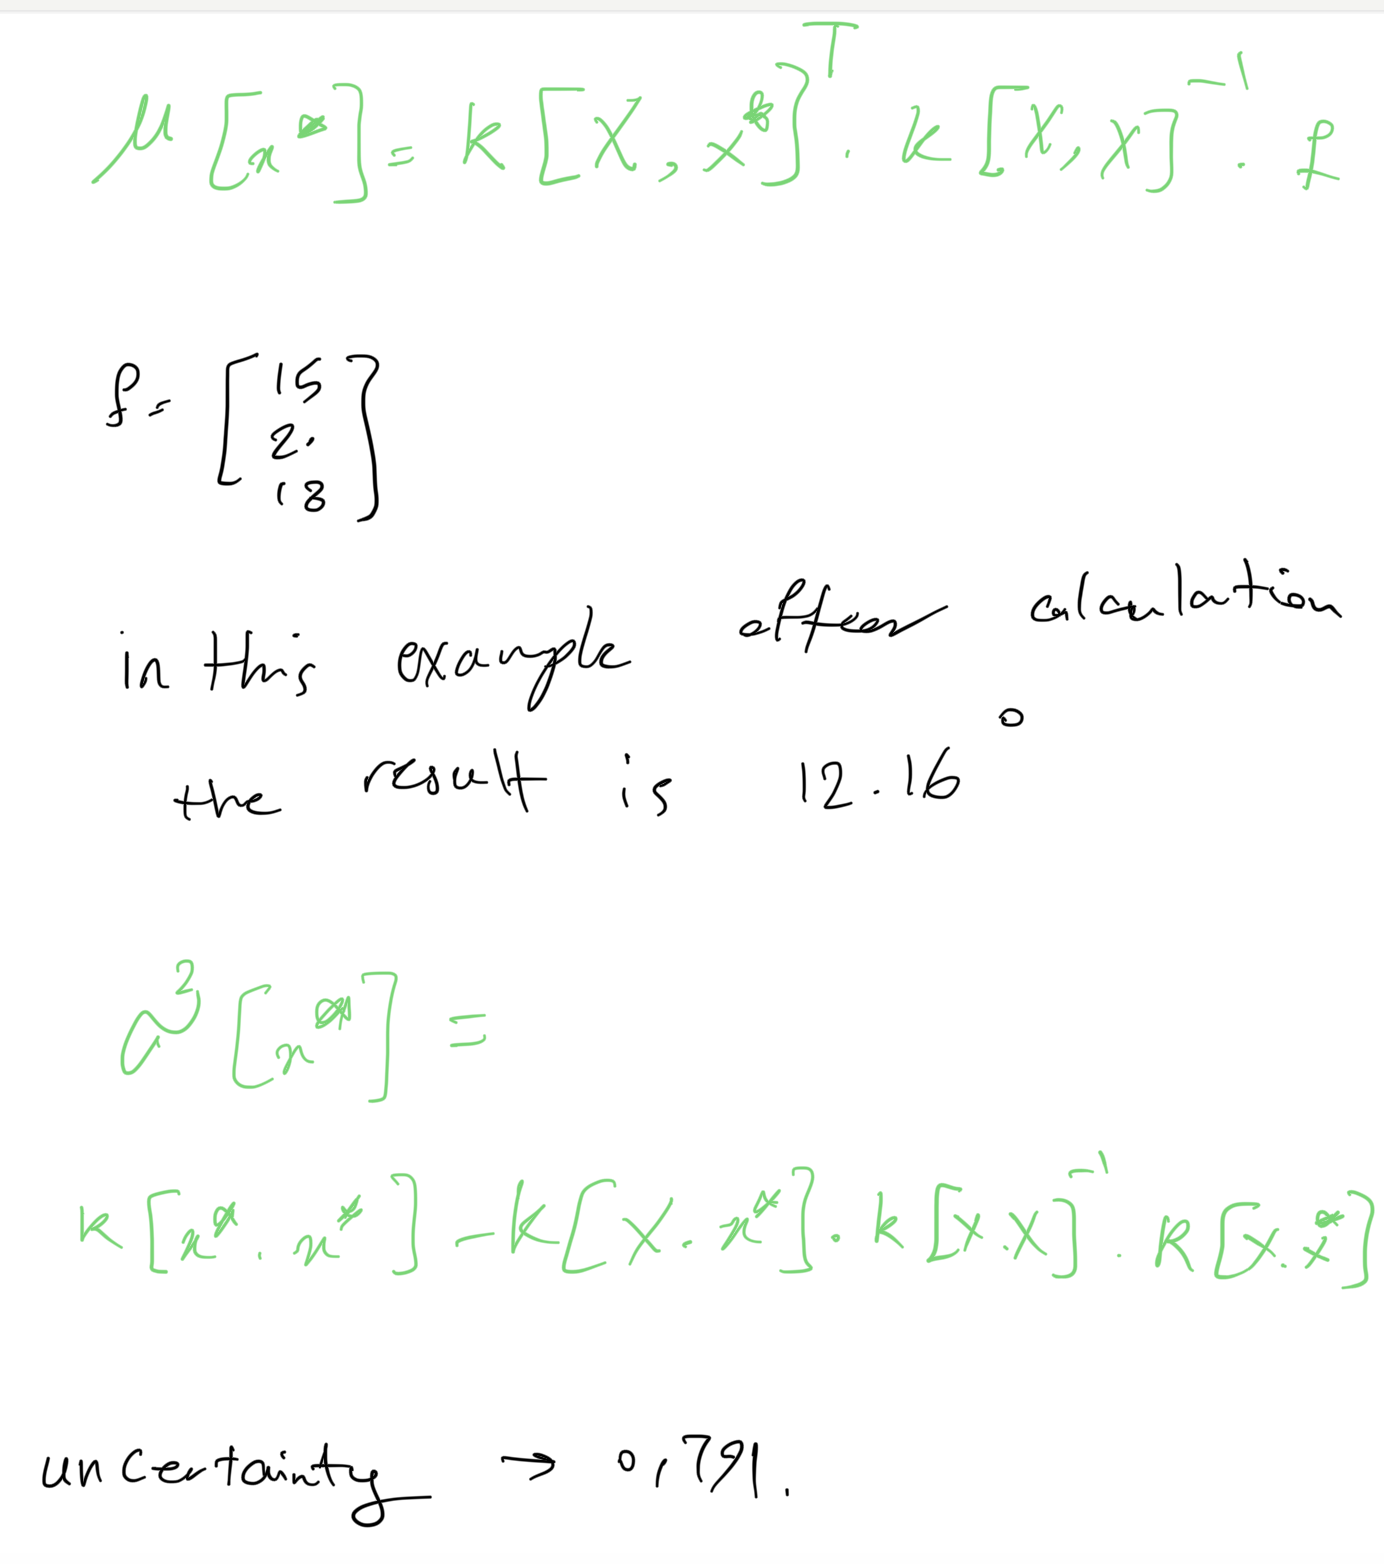 μ[x*] = k[X, x*]ᵀ . k[X, X]⁻¹ . f
f = [15
2.
18]
in this example after calculation
the result is 12.16°
σ²[x*] =
k[x* . x*] - k[X . x*] . k[X . X]⁻¹ . k[X . x*]
uncertainty → 0,791.